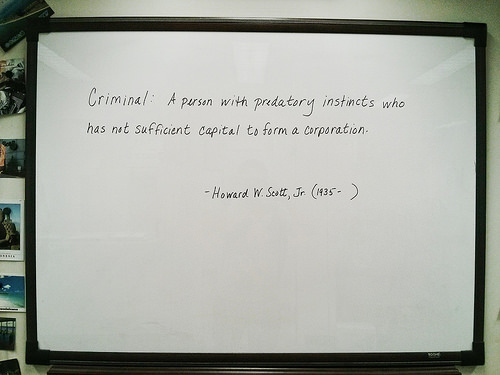 Criminal: A person with predatory instincts who
has not sufficient capital to form a corporation.
- Howard W. Scott, Jr. (1935- )